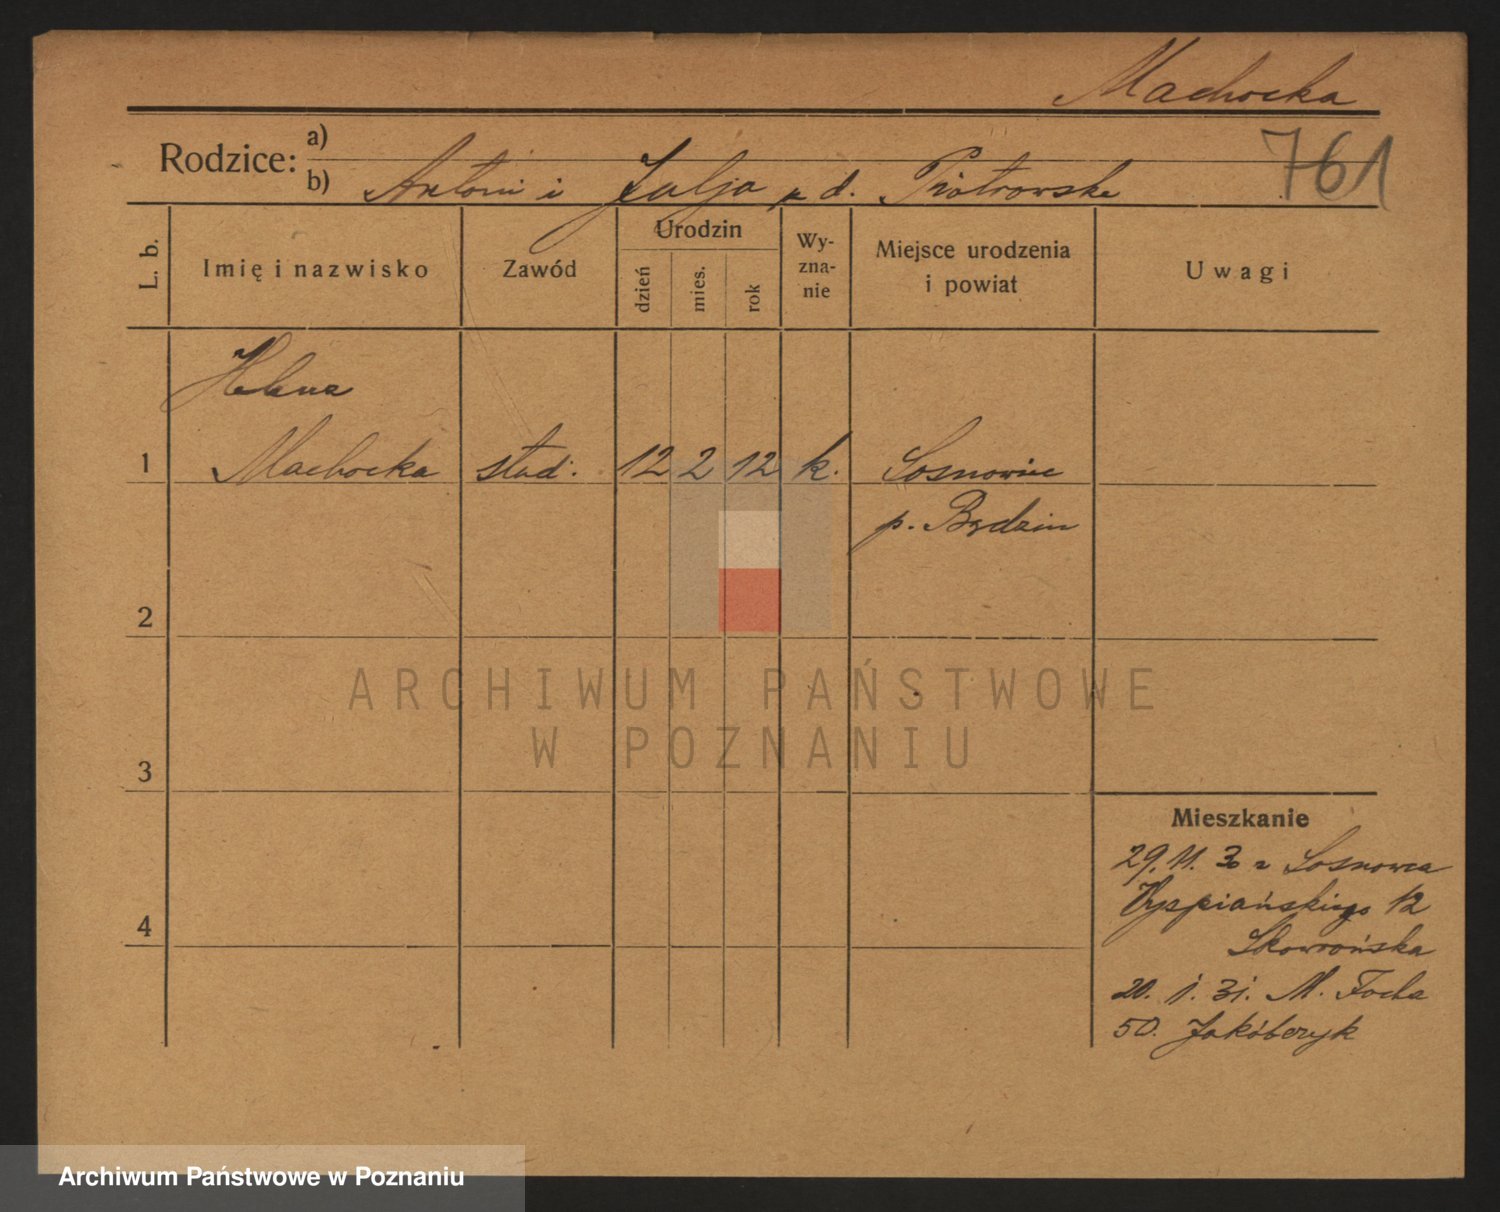 Machocka
761
Rodzice: a)
b) Antoni i Julja z d. Piotrowska
L. b. Imię i nazwisko Zawód Urodzin dzień mies. rok Wy- zna- nie Miejsce urodzenia i powiat Uwagi
Helena
1 Machocka stud. 12 2 12 k. Sosnowiec
p. Będzin
2
ARCHIWUM PAŃSTWOWE
W POZNANIU
3
Mieszkanie
29. 11. 30 z Sosnowca
Wyspiańskiego 12
4
Skowrońska
20. 1. 31. M. Focha
50. Jakóbczyk
Archiwum Państwowe w Poznaniu